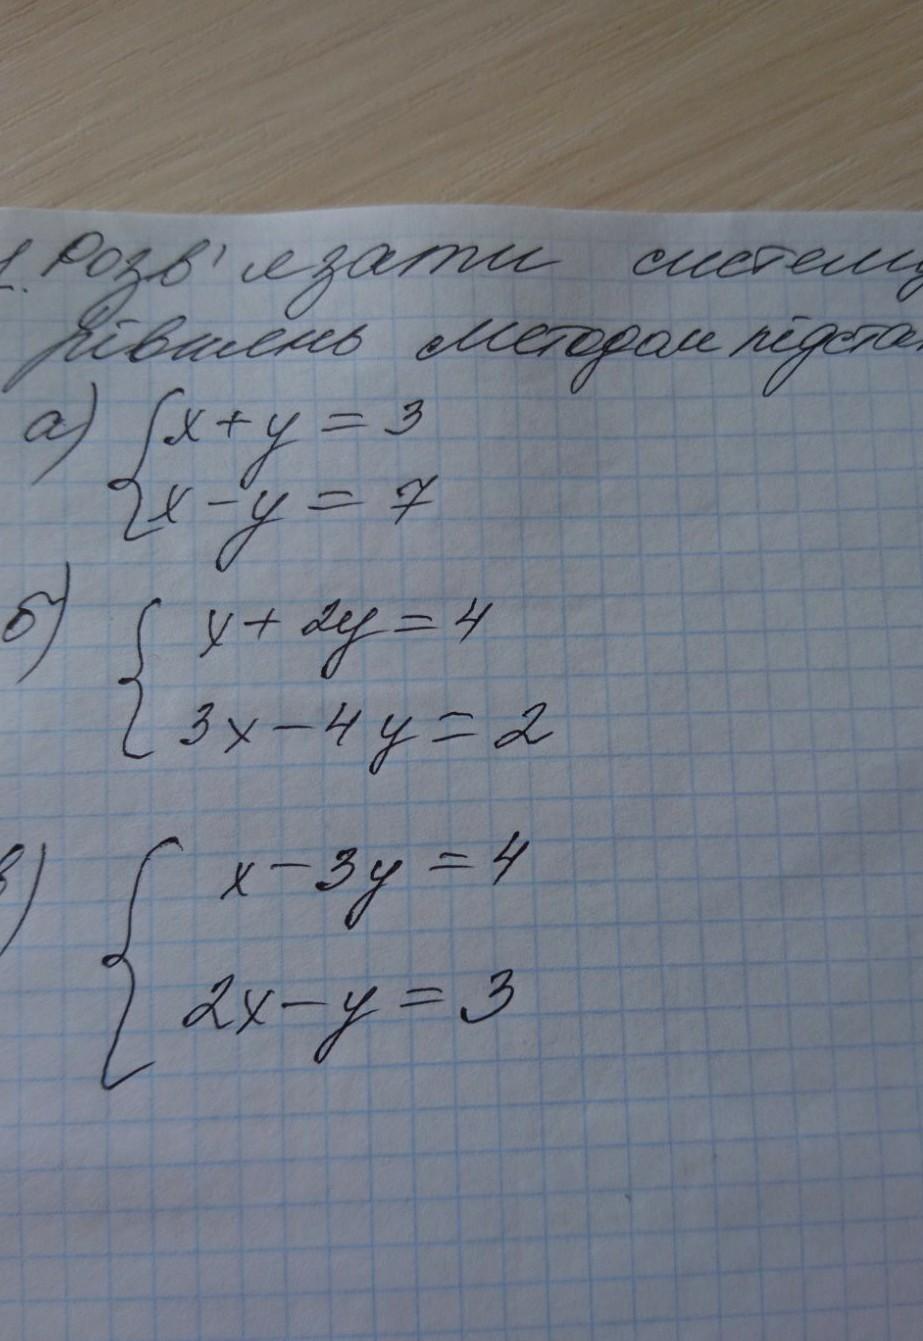 1. Розв'язати систему
рівнянь методом підстан
а) { x + y = 3
x - y = 7
б) { x + 2y = 4
3x - 4y = 2
в) { x - 3y = 4
2x - y = 3